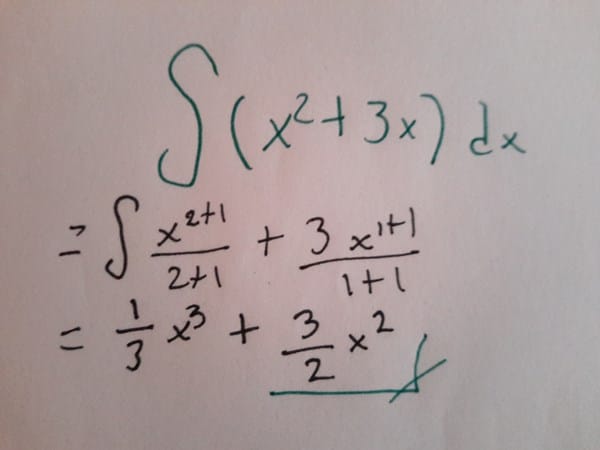 ∫(x²+3x) dx
= ∫ x²⁺¹/2+1 + 3x¹⁺¹/1+1
= 1/3 x³ + 3/2 x²